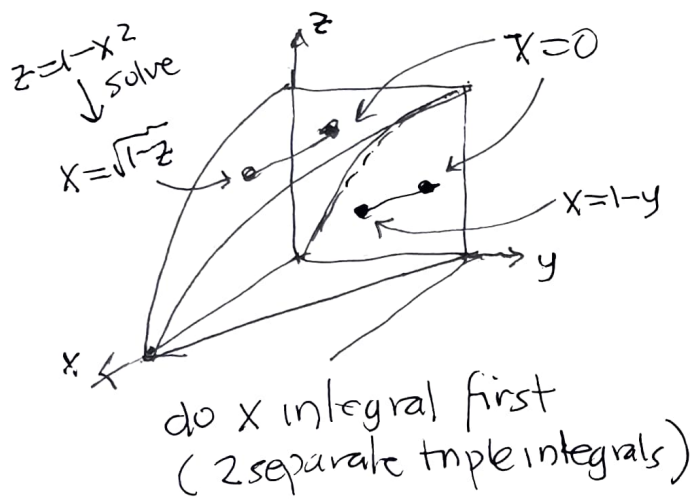 z
z=1-x²
solve
x=0
x=√1-z
x=1-y
y
x
do x integral first
(2 separate triple integrals)